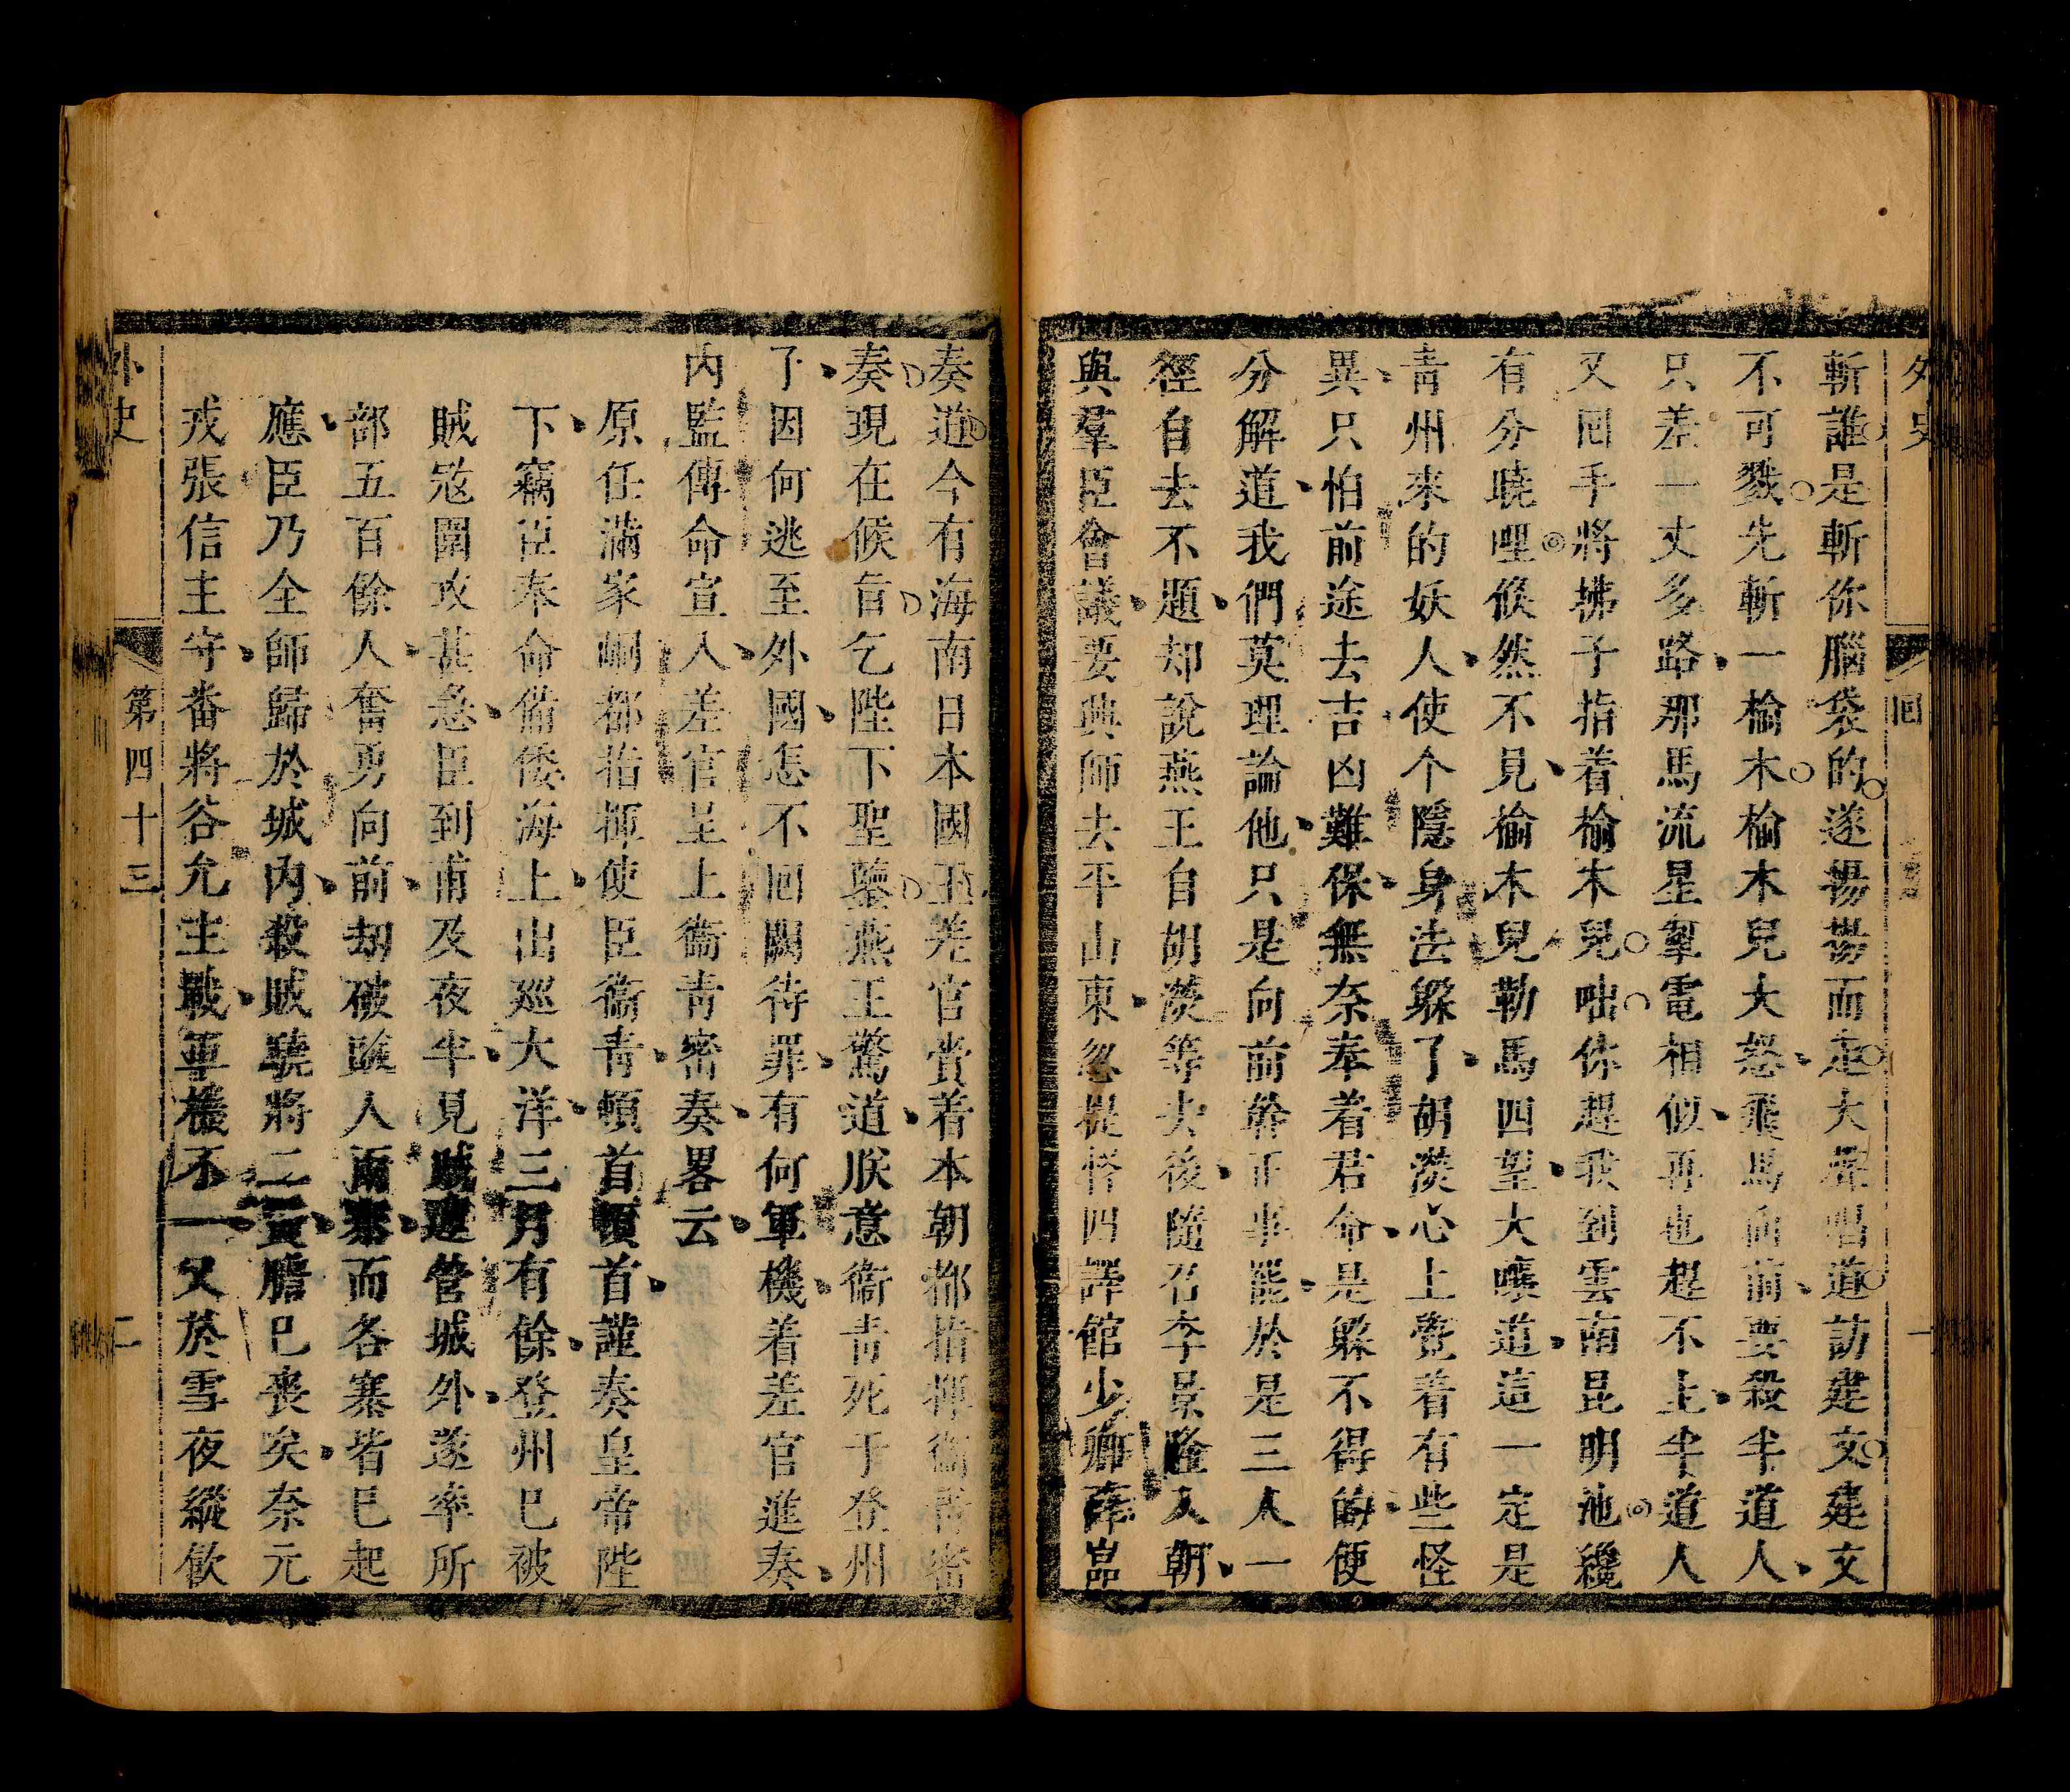 外史
回
一
斬誰是斬你腦袋的遂揚揚而走大聲唱道訪建文建文
不可戮先斬一榆木榆木兒大怒飛馬向前要殺半道人
只差一丈多路那馬流星掣電相似再也趕不上半道人
又回手將拂子指着榆木兒咄你趕我到雲南昆明池纔
有分曉哩倐然不見榆木兒勒馬四望大嚷道這一定是
青州來的妖人使个隱身法躱了胡濙心上覺着有些怪
異只怕前途去吉凶難保無奈奉着君命是躱不得的便
分解道我們莫理論他只是向前幹正事罷於是三人一
徑自去不題却說燕王自胡濙等去後隨召李景隆入朝
與羣臣會議要興師去平山東忽提督四譯館少卿薛嵓
奏道今有海南日本國王差官賫着本朝都指揮衞青密
奏現在候旨乞陛下聖鑒燕王驚道朕意衞青死于登州
了因何逃至外國怎不回闕待罪有何軍機着差官進奏
內監傳命宣入差官呈上衞青密奏畧云
原任滿家峒都指揮使臣衞青頓首頓首謹奏皇帝陛
下竊臣奉命備倭海上出巡大洋三月有餘登州已被
賊寇圍攻甚急臣到甫及夜半見賊連營城外遂率所
部五百餘人奮勇向前刼破賊人兩寨而各寨皆已起
應臣乃全師歸於城內殺賊驍將二員膽已喪矣奈元
戎張信主守番將谷允主戰軍機不一又於雪夜縱飲
外史
第四十三
二